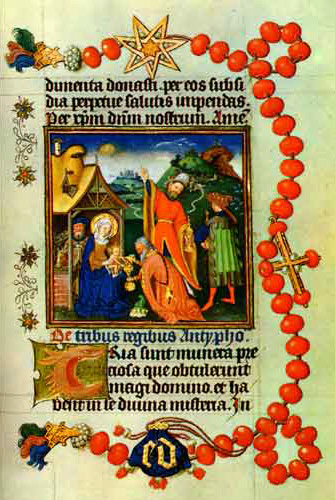 dimenta donasti. per eos subsi
dia perpetue salutis impendas.
Per xp̄m dn̄m nostrum. Amē
De tribus regibus Antypho.
TRia sunt munera pre
ciosa que obtulerunt
magi domino. et ha
bent in se diuina misteria. In
ed